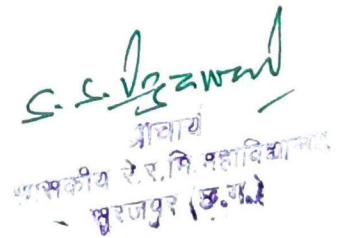 S. S. Agrawal
प्राचार्य
शासकीय रे.र.मि. महाविद्यालय
सूरजपुर (छ.ग.)